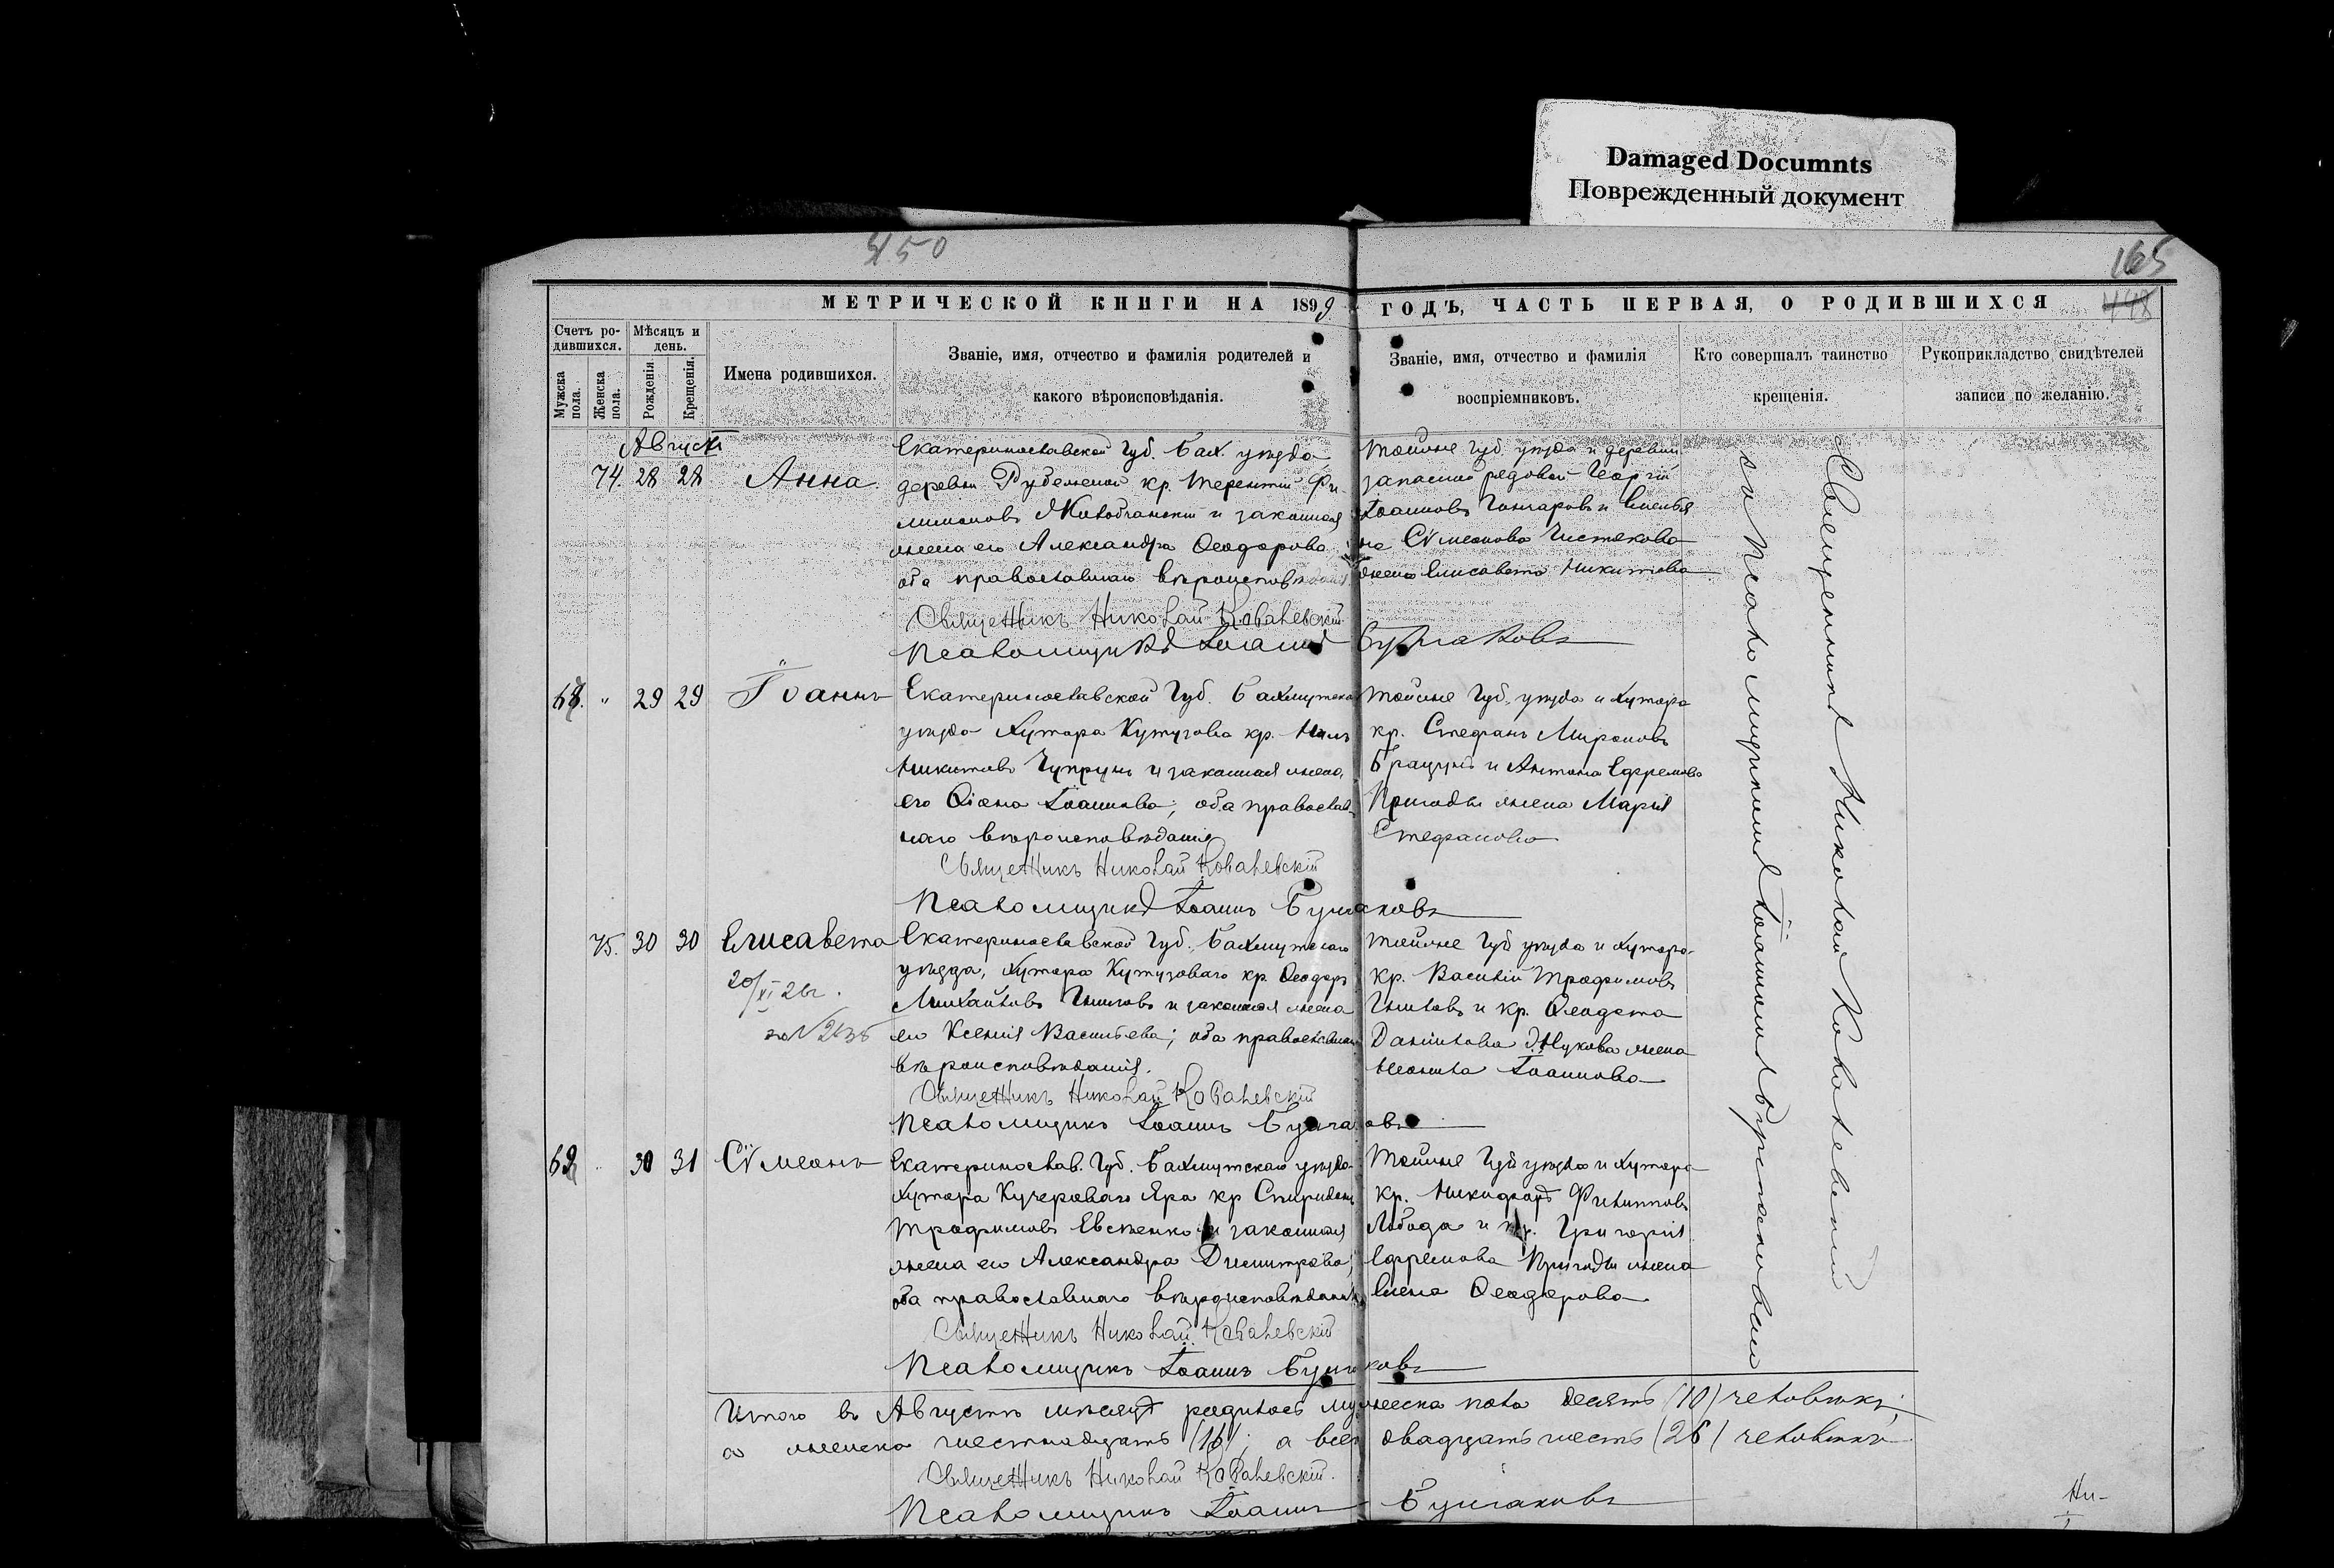 Damaged Documnts
Поврежденный документ
450
165
МЕТРИЧЕСКОЙ КНИГИ НА 1899 ГОДЪ, ЧАСТЬ ПЕРВАЯ, О РОДИВШИХСЯ
448
Счетъ ро-
дившихся.
Мужска пола.
Женска пола.
Мѣсяцъ и
день.
Рожденія.
Крещенія.
Имена родившихся.
Званіе, имя, отчество и фамилія родителей и
какого вѣроисповѣданія.
Званіе, имя, отчество и фамилія
воспріемниковъ.
Кто совершалъ таинство
крещенія.
Рукоприкладство свидѣтелей
записи по желанію.
Августъ
74. 28 28 Анна.
Екатеринославской Губ. Бах. уѣзда
деревни Рубежной кр. Терентій Фи-
лимоновъ и законная
жена его Александра Ѳеодорова
оба православнаго вѣроисповѣданія
Священникъ Николай Ковалевскій
Псаломщикъ Іоаннъ
Тойже Губ. уѣзда и деревни
запасной рядовой Георгій
Іоанновъ Гончаровъ и
Сѵмеонова Чистякова
жена Елисавета Никитова
68. " 29 29 Іоаннъ
Екатеринославской Губ. Бахмутскаго
уѣзда Хутора Кутузова кр.
Никитовъ Чупрунъ и законная жена
его Іоаннова; оба православ-
наго вѣроисповѣданія
Священникъ Николай Ковалевскій
Псаломщикъ Іоаннъ
Тойже Губ. уѣзда и Хутора
кр. Стефанъ Мироновъ
и Антона Ефремова
Пригоды жена Марія
Стефанова
75. 30 30 Елисавета
20/XI 26г.
за № 2636
Екатеринославской Губ. Бахмутскаго
уѣзда, Хутора Кутузоваго кр. Ѳеодоръ
Михайловъ Гниловъ и законная жена
его Ксенія Васильева; оба православнаго
вѣроисповѣданія.
Священникъ Николай Ковалевскій
Псаломщикъ Іоаннъ
Тойже Губ уѣзда и Хутора
кр. Василій Трофимовъ
Гниловъ и кр. Ѳеодота
Даніилова Жукова жена
Неонила Іоаннова
69 " 30 31 Сѵмеонъ
Екатеринослав. Губ. Бахмутскаго уѣзда
Хутора Кучероваго Яра кр Спиридонъ
Трофимовъ Евсѣенко и законная
жена его Александра Димитрова;
оба православнаго вѣроисповѣданія
Священникъ Николай Ковалевскій
Псаломщикъ Іоаннъ
Тойже Губ уѣзда и Хутора
кр. Никифоръ Филипповъ
Лобода и кр. Григорія
Ефремова Пригоды жена
Елена Ѳеодорова
Священникъ Николай Ковалевскій
съ Псаломщикомъ Іоанномъ
Итого въ Августѣ мѣсяцѣ родилось мужеска пола десять (10) человѣкъ;
а женска шестнадцать (16); а всего двадцать шесть (26) человѣкъ
Священникъ Николай Ковалевскій.
Псаломщикъ Іоаннъ